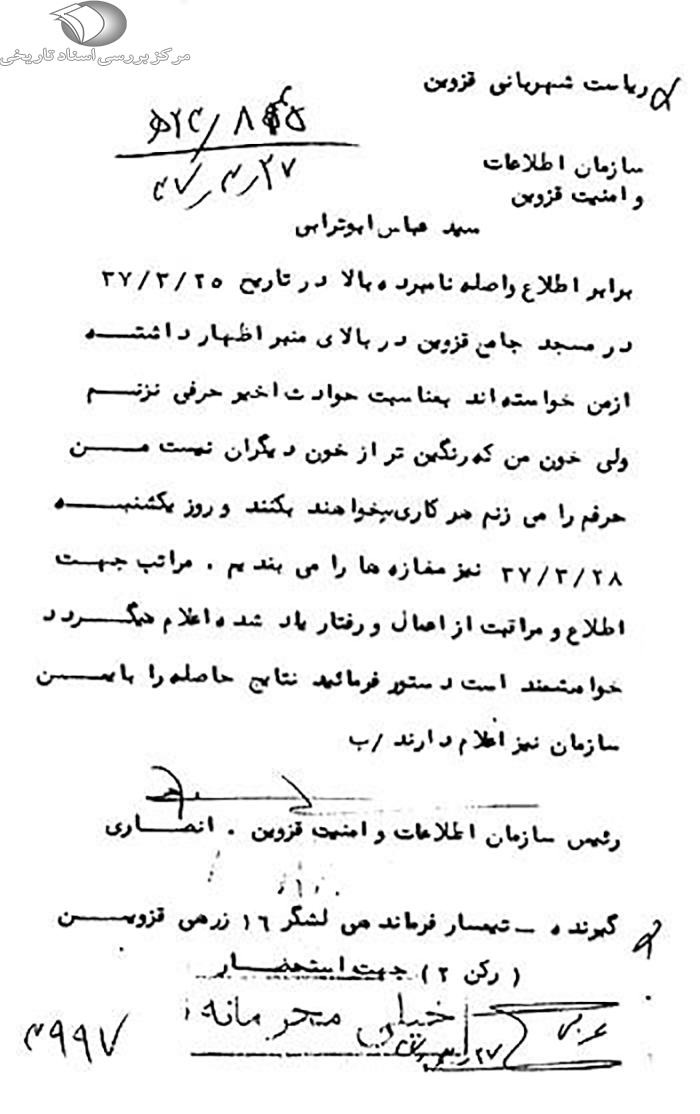 مرکز بررسی اسناد تاریخی
ریاست شهربانی قزوین
سازمان اطلاعات
و امنیت قزوین
۲۷
سید عباس ابوترابی
برابر اطلاع واصله نامبرده بالا در تاریخ ۳۷/۳/۲۵
در مسجد جامع قزوین در بالای منبر اظهار داشته
ازمن خواسته‌اند بمناسبت حوادث اخیر حرفی نزنم
ولی خون من که رنگین تر از خون دیگران نیست من
حرفم را می زنم هر کاری میخواهند بکنند و روز یکشنبه
۳۷/۳/۲۸ نیز مغازه ها را می بندیم . مراتب جهت
اطلاع و مراقبت از اعمال و رفتار یاد شده اعلام میگردد
خواهشمند است دستور فرمائید نتایج حاصله را باین
سازمان نیز اعلام دارند /ب
رئیس سازمان اطلاعات و امنیت قزوین . انصاری
گیرنده – تیمسار فرماندهی لشگر ۱۶ زرهی قزوین
( رکن ۲ ) جهت استحضار
خیلی محرمانه
۴۹۹۷